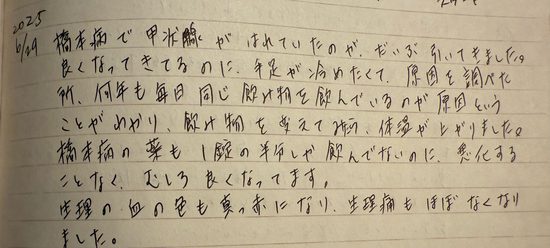 2025
6/29
橋本病で甲状腺がはれていたのが、だいぶ引いてきました。
良くなってきてるのに、手足が冷めたくて、原因を調べた
所、何年も毎日同じ飲み物を飲んでいるのが原因という
ことがわかり、飲み物を変えてみたら、体温が上がりました。
橋本病の薬も1錠の半分しか飲んでないのに、悪化する
ことなく、むしろ良くなってます。
生理の血の色も真っ赤になり、生理痛もほぼなくなり
ました。